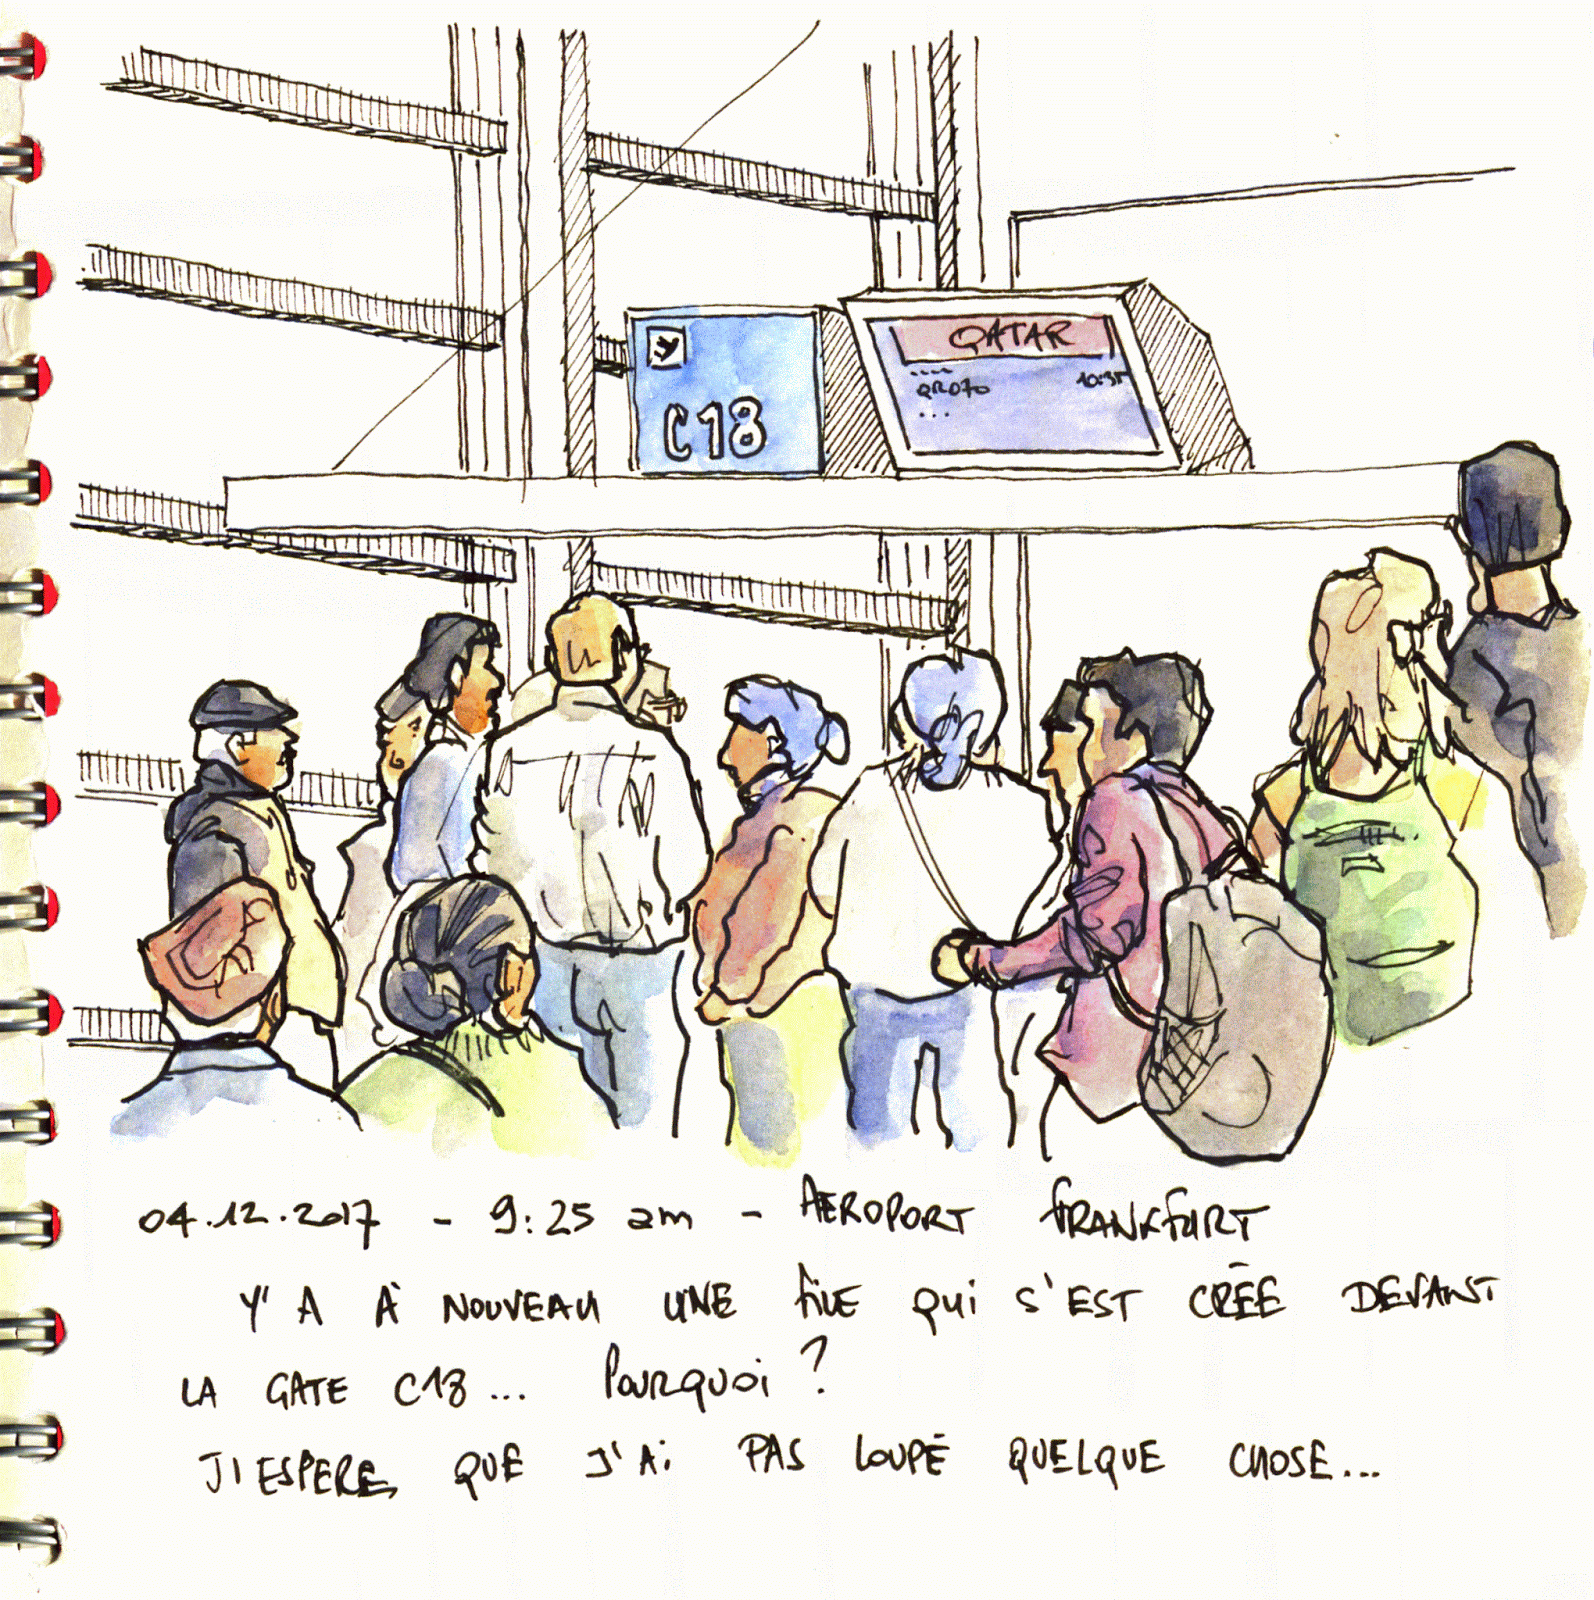 QATAR
QR070 10:35
C18
04.12.2017 - 9:25 am - AEROPORT FRANKFURT
Y' A À NOUVEAU UNE FILE QUI S'EST CRÉE DEVANT
LA GATE C18... POURQUOI ?
J'ESPERE QUE J'AI PAS LOUPÉ QUELQUE CHOSE...